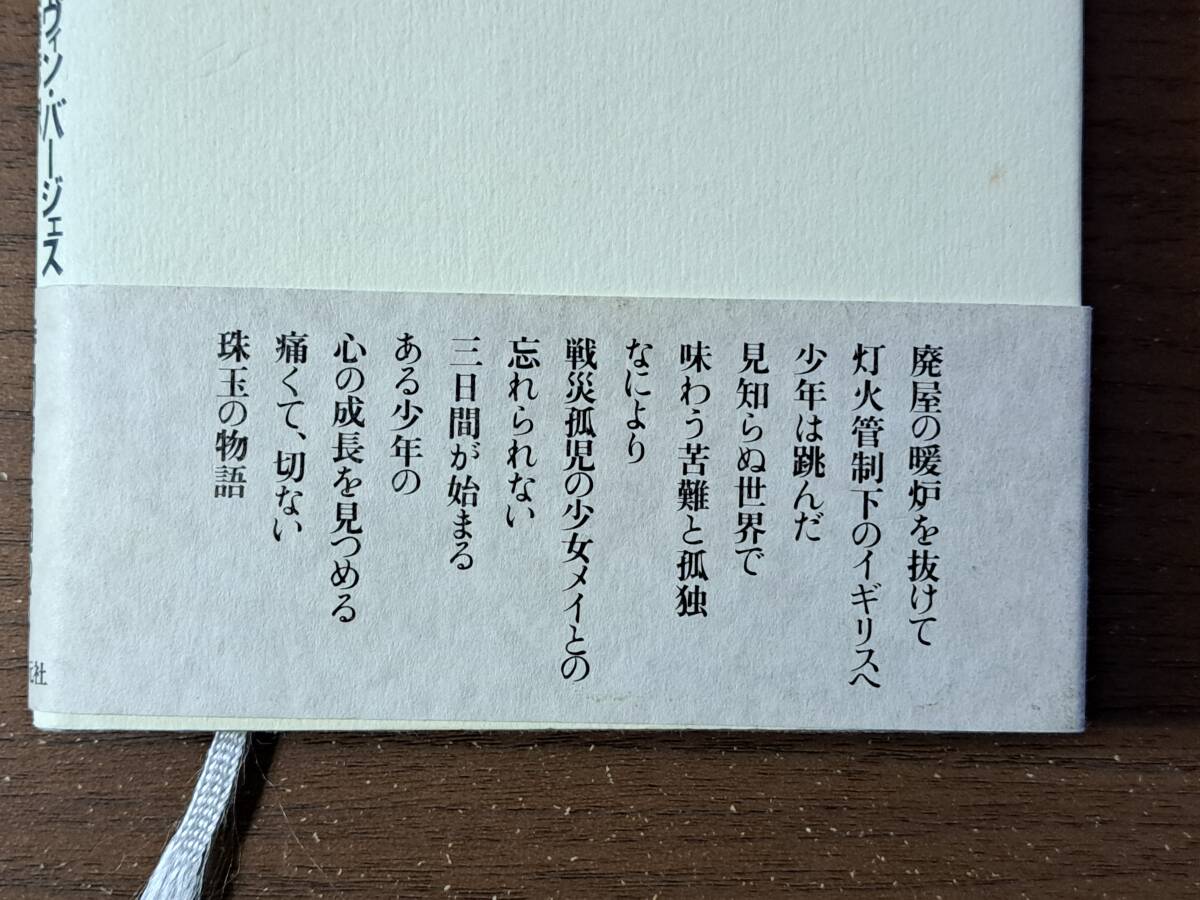 廃屋の暖炉を抜けて
灯火管制下のイギリスへ
少年は跳んだ
見知らぬ世界で
味わう苦難と孤独
なにより
戦災孤児の少女メイとの
忘れられない
三日間が始まる
ある少年の
心の成長を見つめる
痛くて、切ない
珠玉の物語
ヴィン・バージェス
社